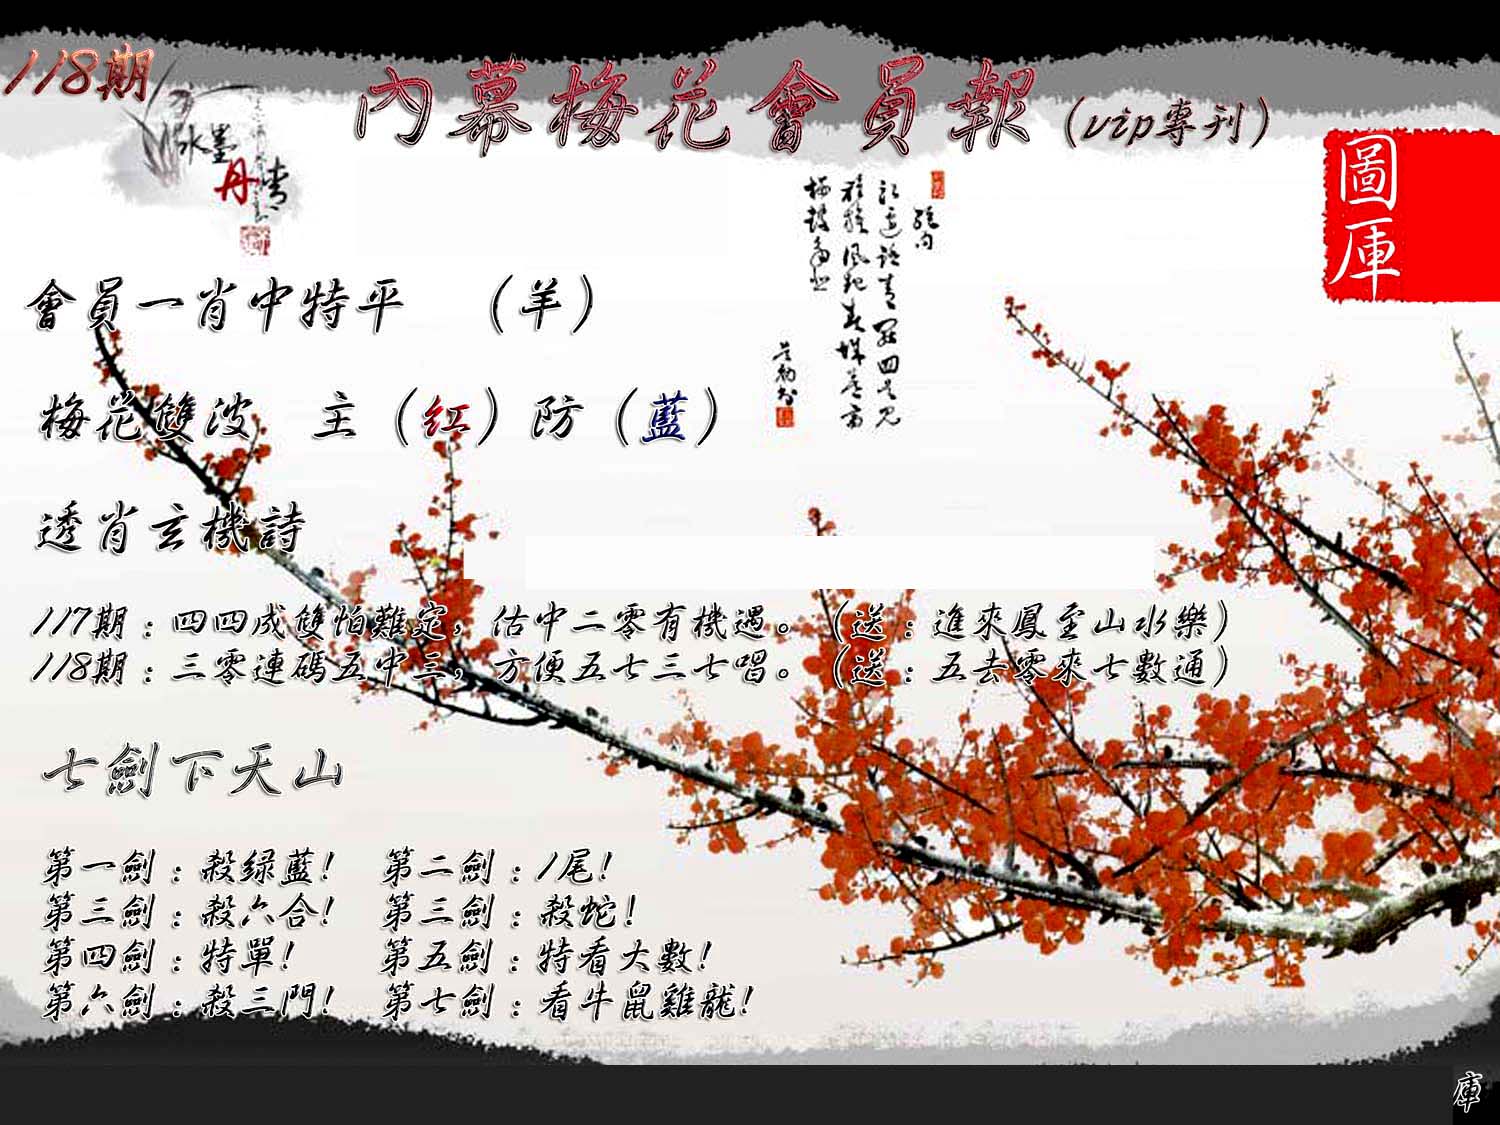 118期
內幕梅花會員報（vip專刊）
水墨
丹青
圖庫
會員一肖中特平　（羊）
梅花雙波　主（紅）防（藍）
透肖玄機詩
117期：四四成雙怕難定，估中二零有機遇。（送：進來鳳至山水樂）
118期：三零連碼五中三，方便五七三七唱。（送：五去零來七數通）
七劍下天山
第一劍：殺绿藍！　第二劍：1尾！
第三劍：殺六合！　第三劍：殺蛇！
第四劍：特單！　第五劍：特看大數！
第六劍：殺三門！　第七劍：看牛鼠雞龍！
庫